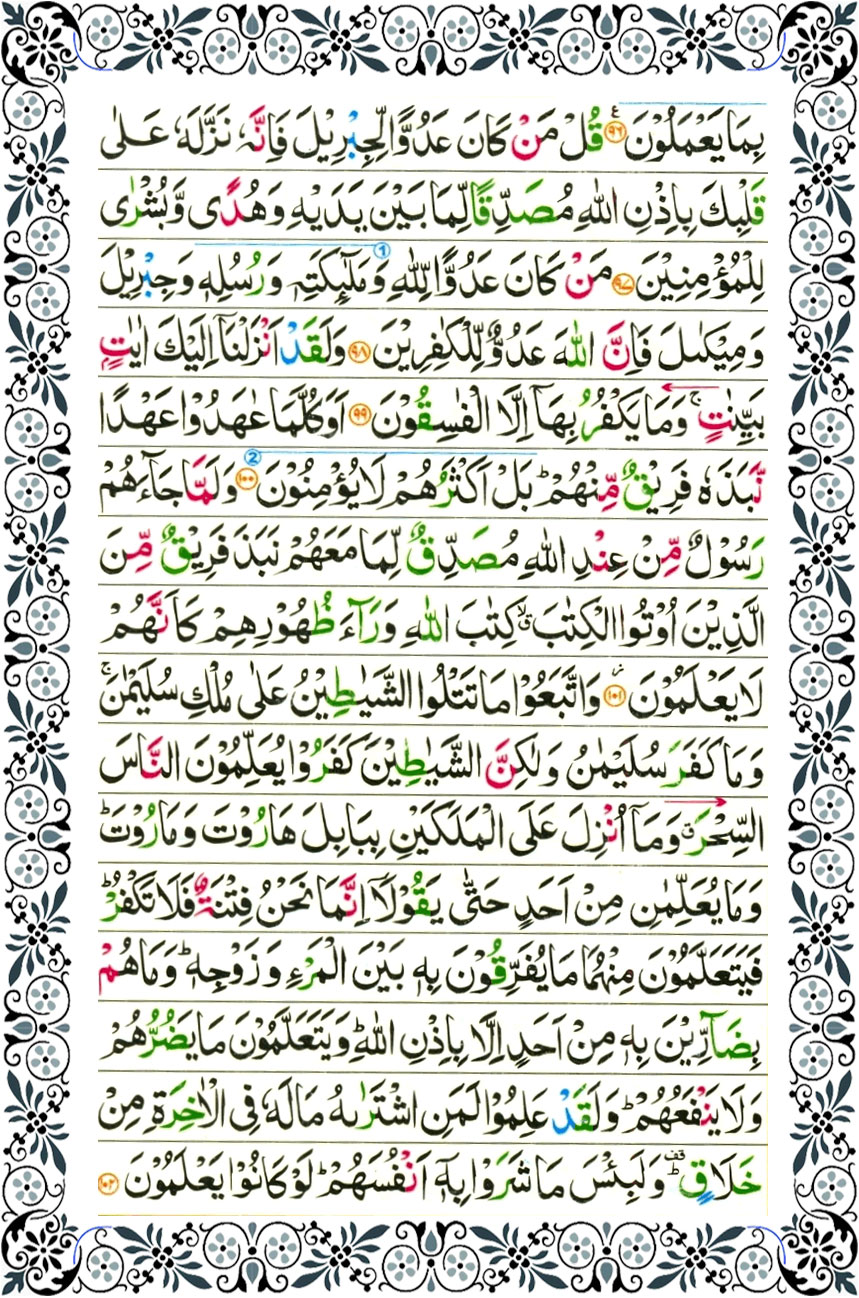 بِمَا يَعْمَلُوْنَ ؑ ﴿۹۶﴾ قُلْ مَنْ كَانَ عَدُوًّا لِّجِبْرِيْلَ فَاِنَّهٗ نَزَّلَهٗ عَلٰى
قَلْبِكَ بِاِذْنِ اللّٰهِ مُصَدِّقًا لِّمَا بَيْنَ يَدَيْهِ وَهُدًى وَّبُشْرٰى
لِلْمُؤْمِنِيْنَ ﴿۹۷﴾ مَنْ كَانَ عَدُوًّا لِّلّٰهِ وَمَلٰٓئِكَتِهٖ وَرُسُلِهٖ وَجِبْرِيْلَ ①
وَمِيْكٰىلَ فَاِنَّ اللّٰهَ عَدُوٌّ لِّلْكٰفِرِيْنَ ﴿۹۸﴾ وَلَقَدْ اَنْزَلْنَاۤ اِلَيْكَ اٰيٰتٍۭ
بَيِّنٰتٍ ۚ وَمَا يَكْفُرُ بِهَاۤ اِلَّا الْفٰسِقُوْنَ ﴿۹۹﴾ اَوَكُلَّمَا عٰهَدُوْا عَهْدًا
نَّبَذَهٗ فَرِيْقٌ مِّنْهُمْ ؕ بَلْ اَكْثَرُهُمْ لَا يُؤْمِنُوْنَ ② ﴿۱۰۰﴾ وَلَمَّا جَآءَهُمْ
رَسُوْلٌ مِّنْ عِنْدِ اللّٰهِ مُصَدِّقٌ لِّمَا مَعَهُمْ نَبَذَ فَرِيْقٌ مِّنَ
الَّذِيْنَ اُوْتُوا الْكِتٰبَ ۙۗ كِتٰبَ اللّٰهِ وَرَآءَ ظُهُوْرِهِمْ كَاَنَّهُمْ
لَا يَعْلَمُوْنَ ؗ ﴿۱۰۱﴾ وَاتَّبَعُوْا مَا تَتْلُوا الشَّيٰطِيْنُ عَلٰى مُلْكِ سُلَيْمٰنَ ۚ
وَمَا كَفَرَ سُلَيْمٰنُ وَلٰكِنَّ الشَّيٰطِيْنَ كَفَرُوْا يُعَلِّمُوْنَ النَّاسَ
السِّحْرَ ۗ وَمَاۤ اُنْزِلَ عَلَى الْمَلَكَيْنِ بِبَابِلَ هَارُوْتَ وَمَارُوْتَ ؕ
وَمَا يُعَلِّمٰنِ مِنْ اَحَدٍ حَتّٰى يَقُوْلَاۤ اِنَّمَا نَحْنُ فِتْنَةٌ فَلَا تَكْفُرْ ؕ
فَيَتَعَلَّمُوْنَ مِنْهُمَا مَا يُفَرِّقُوْنَ بِهٖ بَيْنَ الْمَرْءِ وَزَوْجِهٖ ؕ وَمَا هُمْ
بِضَآرِّيْنَ بِهٖ مِنْ اَحَدٍ اِلَّا بِاِذْنِ اللّٰهِ ؕ وَيَتَعَلَّمُوْنَ مَا يَضُرُّهُمْ
وَلَا يَنْفَعُهُمْ ؕ وَلَقَدْ عَلِمُوْا لَمَنِ اشْتَرٰىهُ مَا لَهٗ فِى الْاٰخِرَةِ مِنْ
خَلَاقٍ ؕ قف وَلَبِئْسَ مَا شَرَوْا بِهٖۤ اَنْفُسَهُمْ ؕ لَوْ كَانُوْا يَعْلَمُوْنَ ﴿۱۰۲﴾